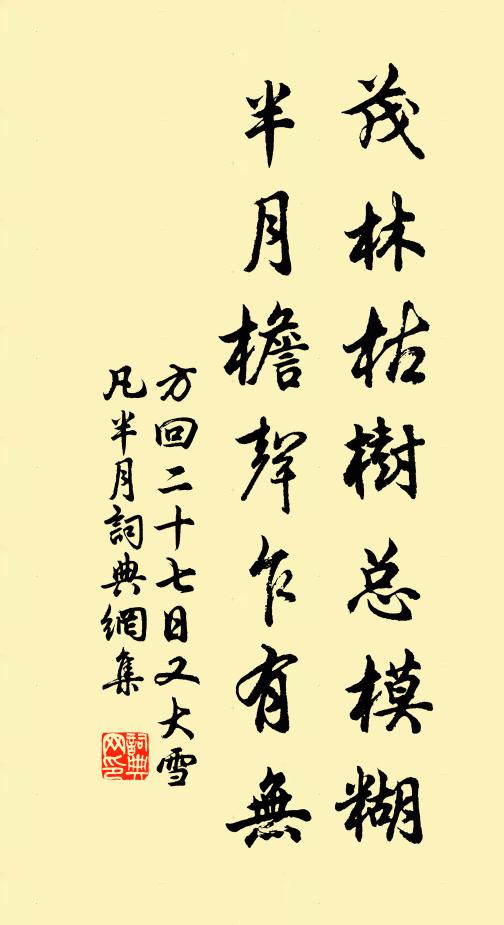 茂林枯樹总模糊
半月檐聲乍有無
方回二十七日又大雪
凡半月詞典網集
詞典网印